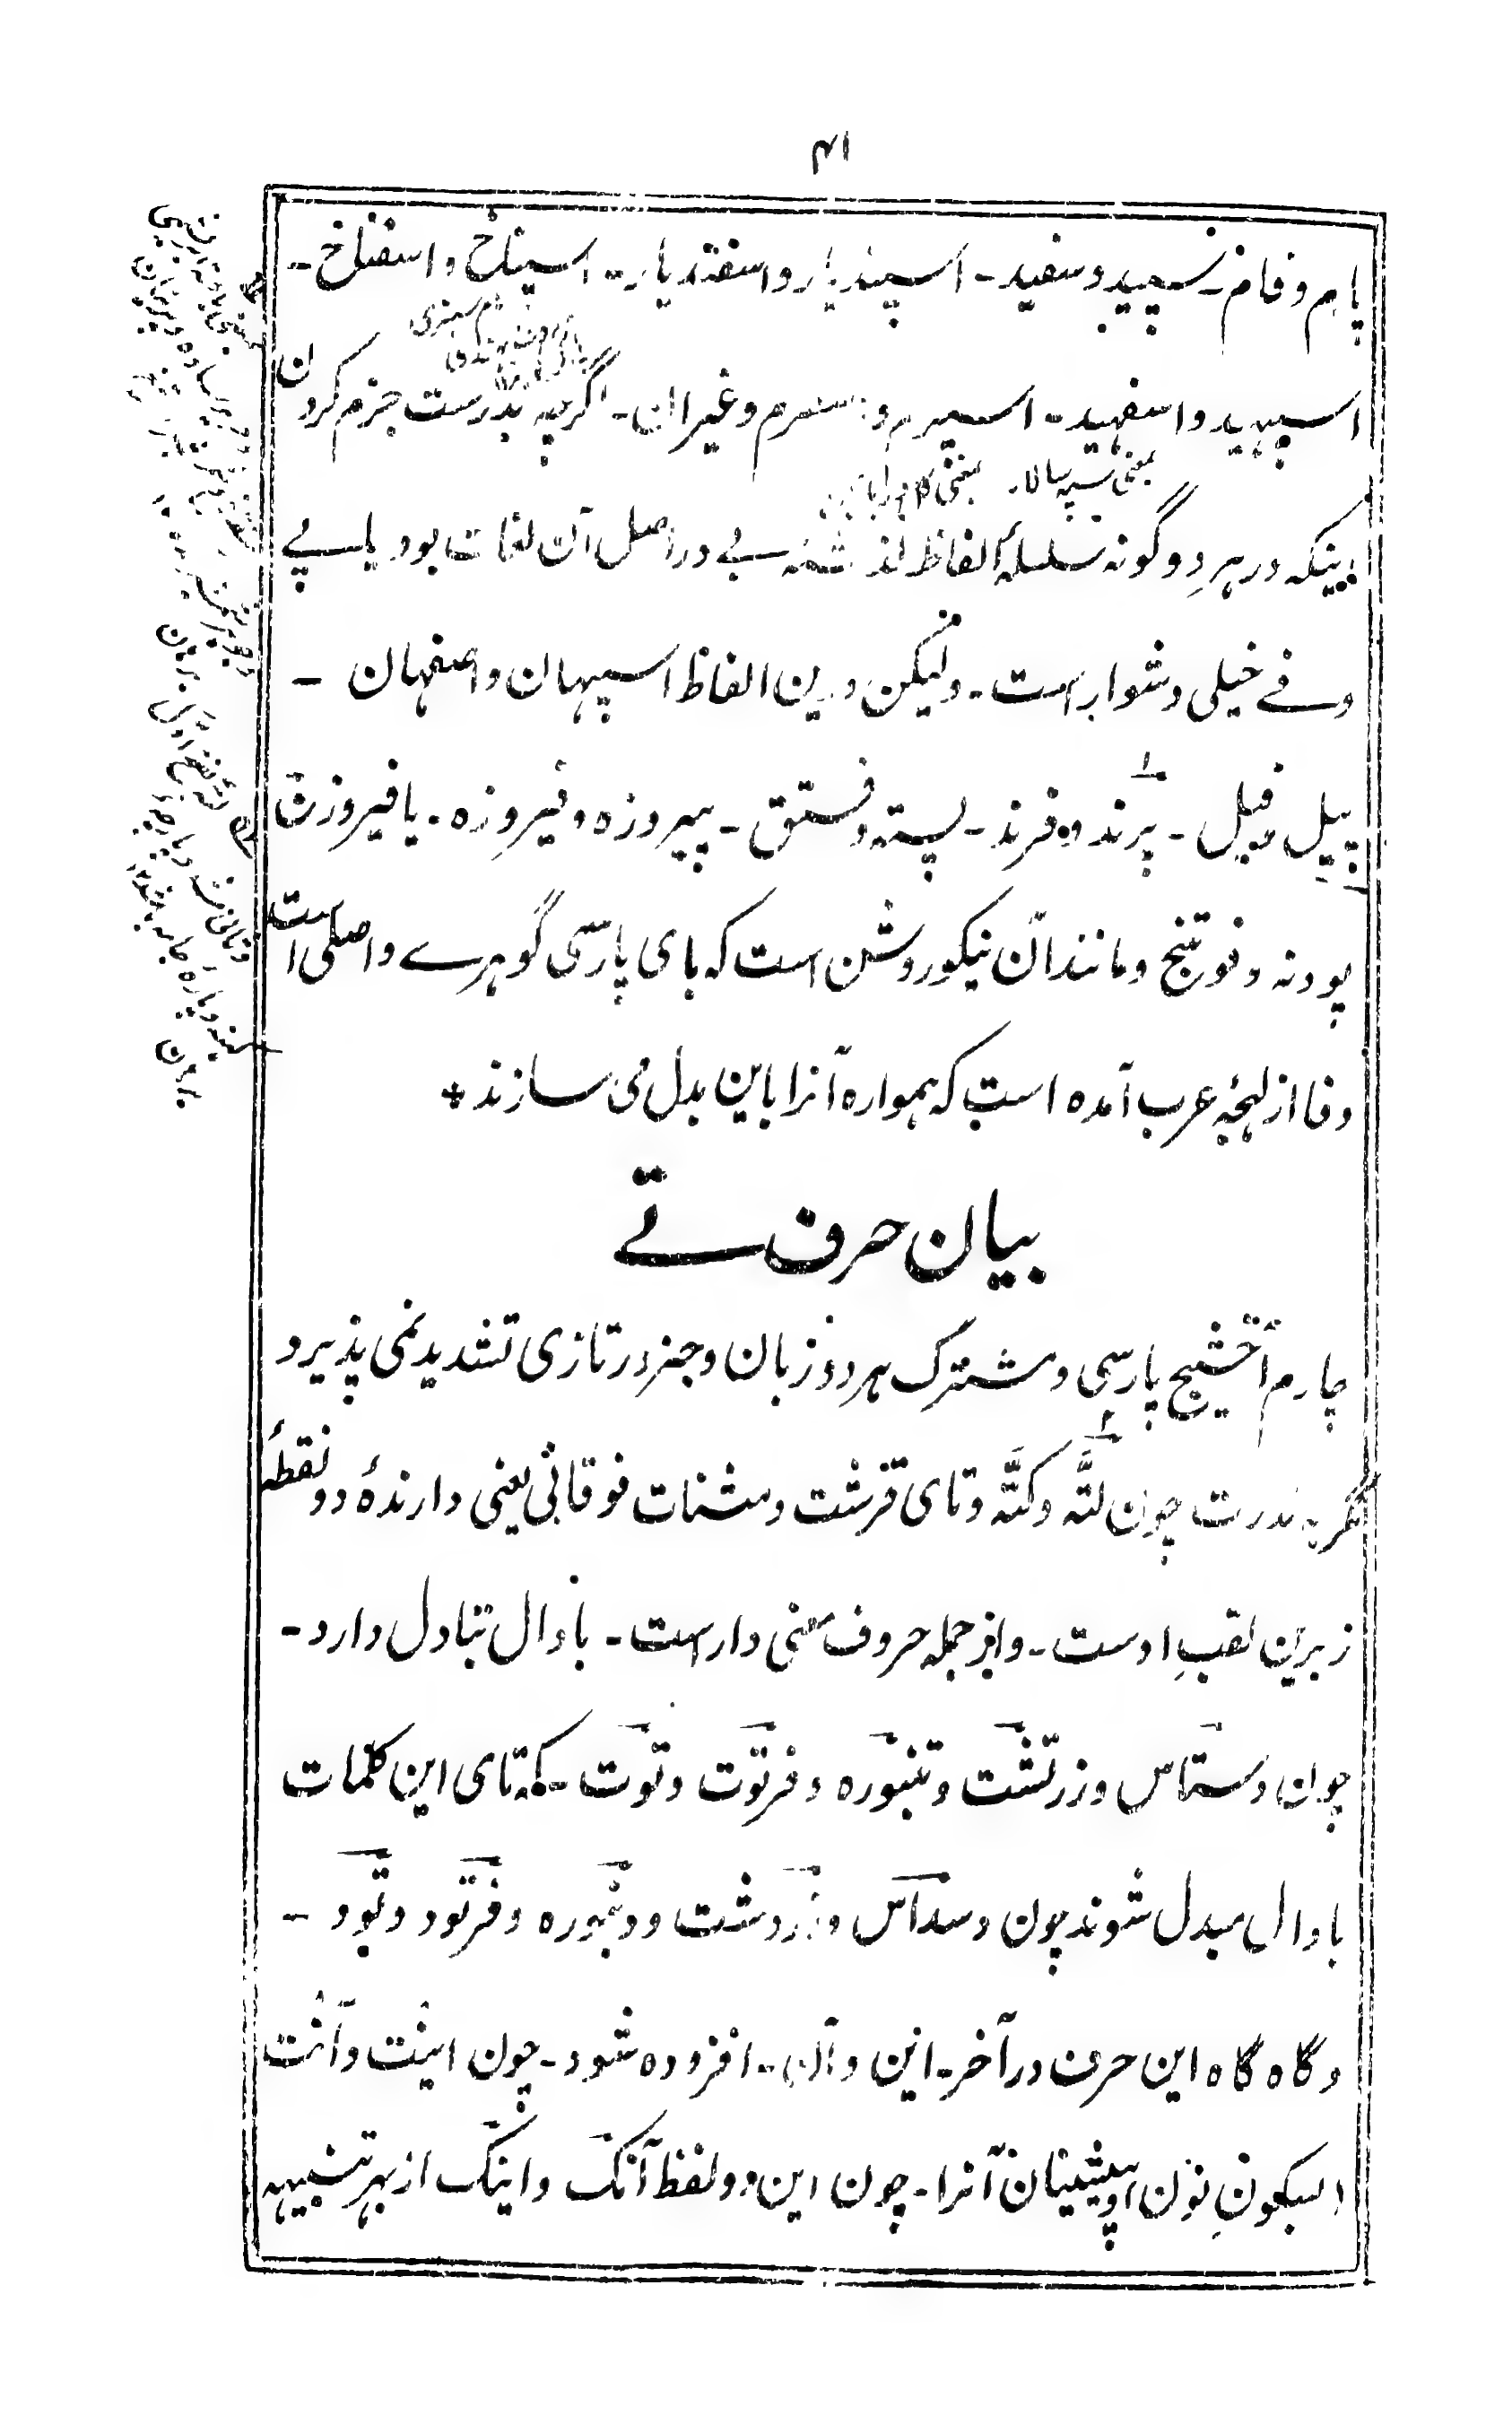 ۴۱
پام و فام ـ سپید و سفید ـ اسپندیار و اسفندیار ـ اسپناخ و اسفناخ ـ
اسپهبد و اسفهبد ـ اسپرم و سفرم و غیران ـ اگرچه بدرست جزم کردن
بمعنی سپه سالار
اینکه در هر دو گونه سلسلهٔ الفاظ گذشته بے در اصل آن لغات بود یا پے
وفے خیلی دشوار است ـ ولیکن درین الفاظ اسپهان و اصفهان ـ
پیل و فیل ـ پرند و فرند ـ پسته و فستق ـ پیروزه و فیروزه ـ یا فیروزق
پودنه و فوتنج و مانند آن نیکو روشن است که بای پارسی گوهرے و اصلی است
و فا از لهجهٔ عرب آمده است که همواره آنرا باین بدل می سازند *
بیان حرف تے
چارم آخشیج پارسی و مشترک هر دو زبان و جز در تازی تشدید نمی پذیرد
مگر به ندرت چون لتّه و کتّه و تای قرشت و مثنات فوقانی یعنی دارندهٔ دو نقطهٔ
زبرین لقبِ اوست ـ و از جمله حروف معنی دار است ـ با دال تبادل دارد ـ
چون دستاس و زرتشت و تنبوره و فرتوت و توت ـ که تای این کلمات
با دال مبدل شوند چون دسداس و زردشت و دنبوره و فرتود و تود ـ
و گاه گاه این حرف در آخر ـ این و آن ـ افزوده شود ـ چون اینت و آنت
بسکونِ نون و پیشینان آنرا ـ چون این دو لفظ آنک و اینک از بهر تنبیه
برهان